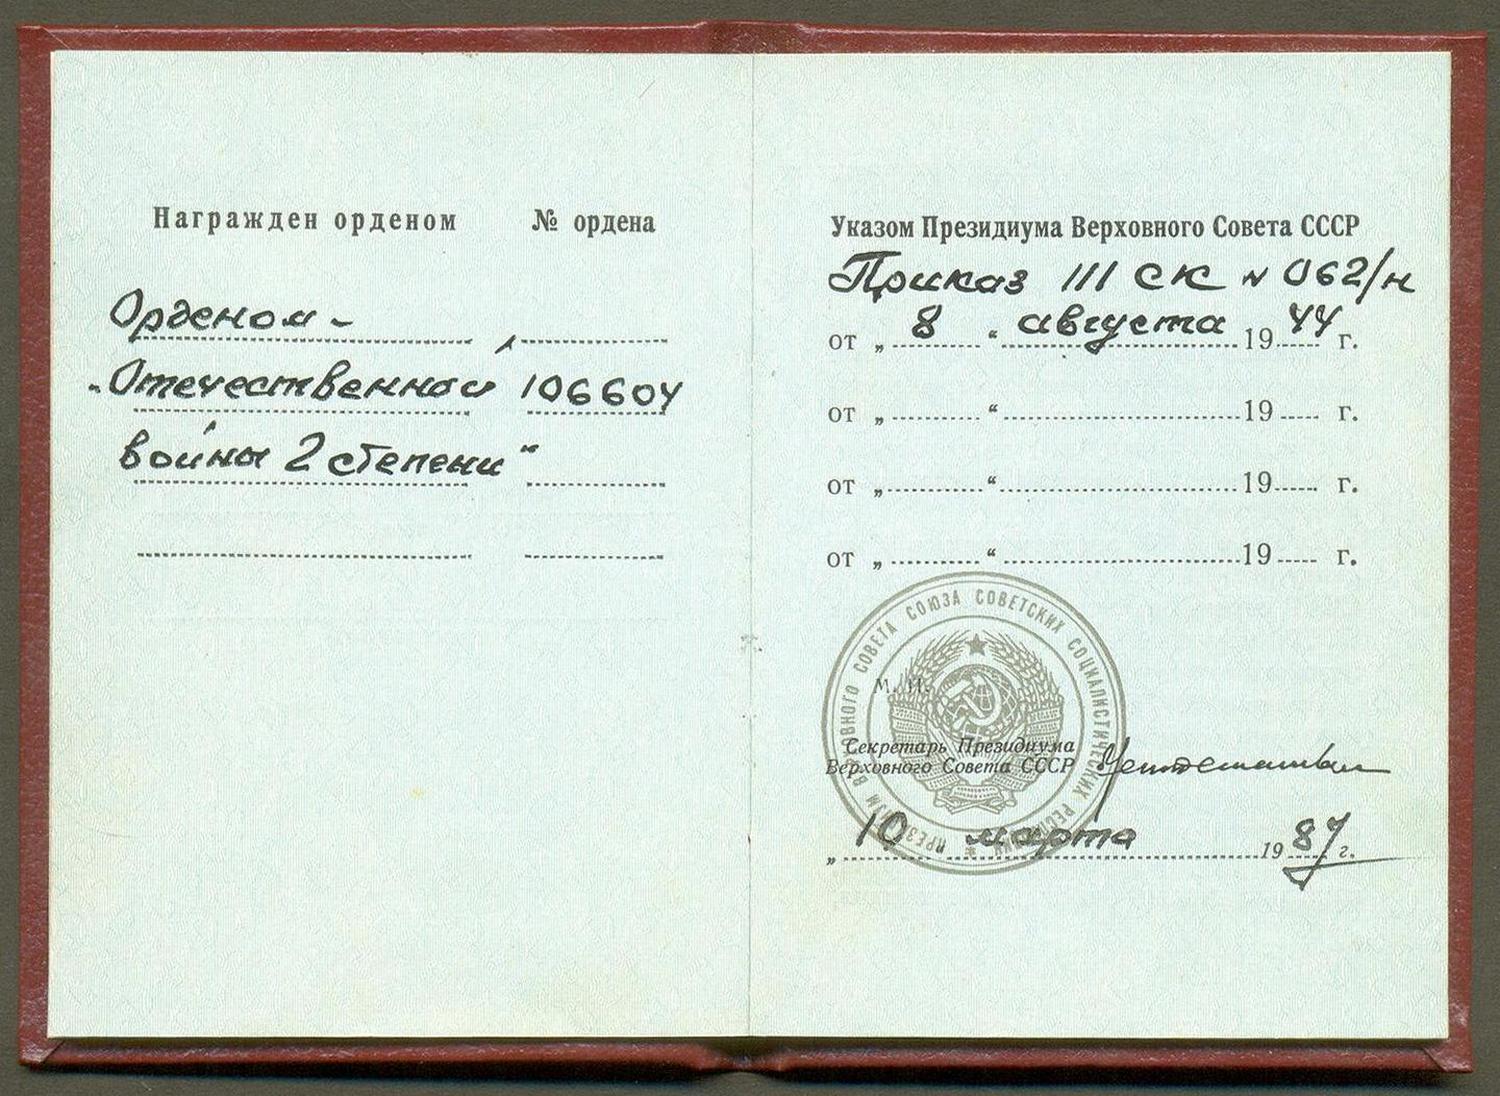 Награжден орденом № ордена
Орденом -
„Отечественной 106604
войны 2 степени“
Указом Президиума Верховного Совета СССР
Приказ 111 СК N 062/н
от „ 8 “ августа 19 44 г.
от „ “ 19 г.
от „ “ 19 г.
от „ “ 19 г.
ПРЕЗИДИУМ ВЕРХОВНОГО СОВЕТА СОЮЗА СОВЕТСКИХ СОЦИАЛИСТИЧЕСКИХ РЕСПУБЛИК
М. П.
Секретарь Президиума
Верховного Совета СССР
„ 10 марта 19 87 г.